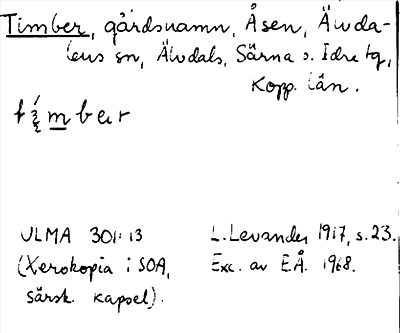 Timber, gårdsnamn, Åsen, Älvda-
lens sn, Älvdals, Särna o. Idre tg,
Kopp. län.
ULMA 301:13
(Xerokopia i SOA,
särsk. kapsel).
L. Levander 1917, s. 23.
Exc. av E.Å. 1968.